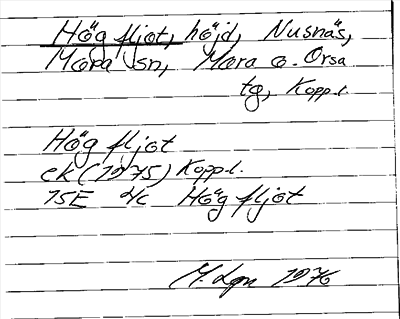 Högfljot, höjd, Nusnäs,
Mora sn, Mora o. Orsa
tg, Kopp.l.
Högfljot
ek (1975) Kopp.l.
15E 4c Högfljot
M. Lgn 1976